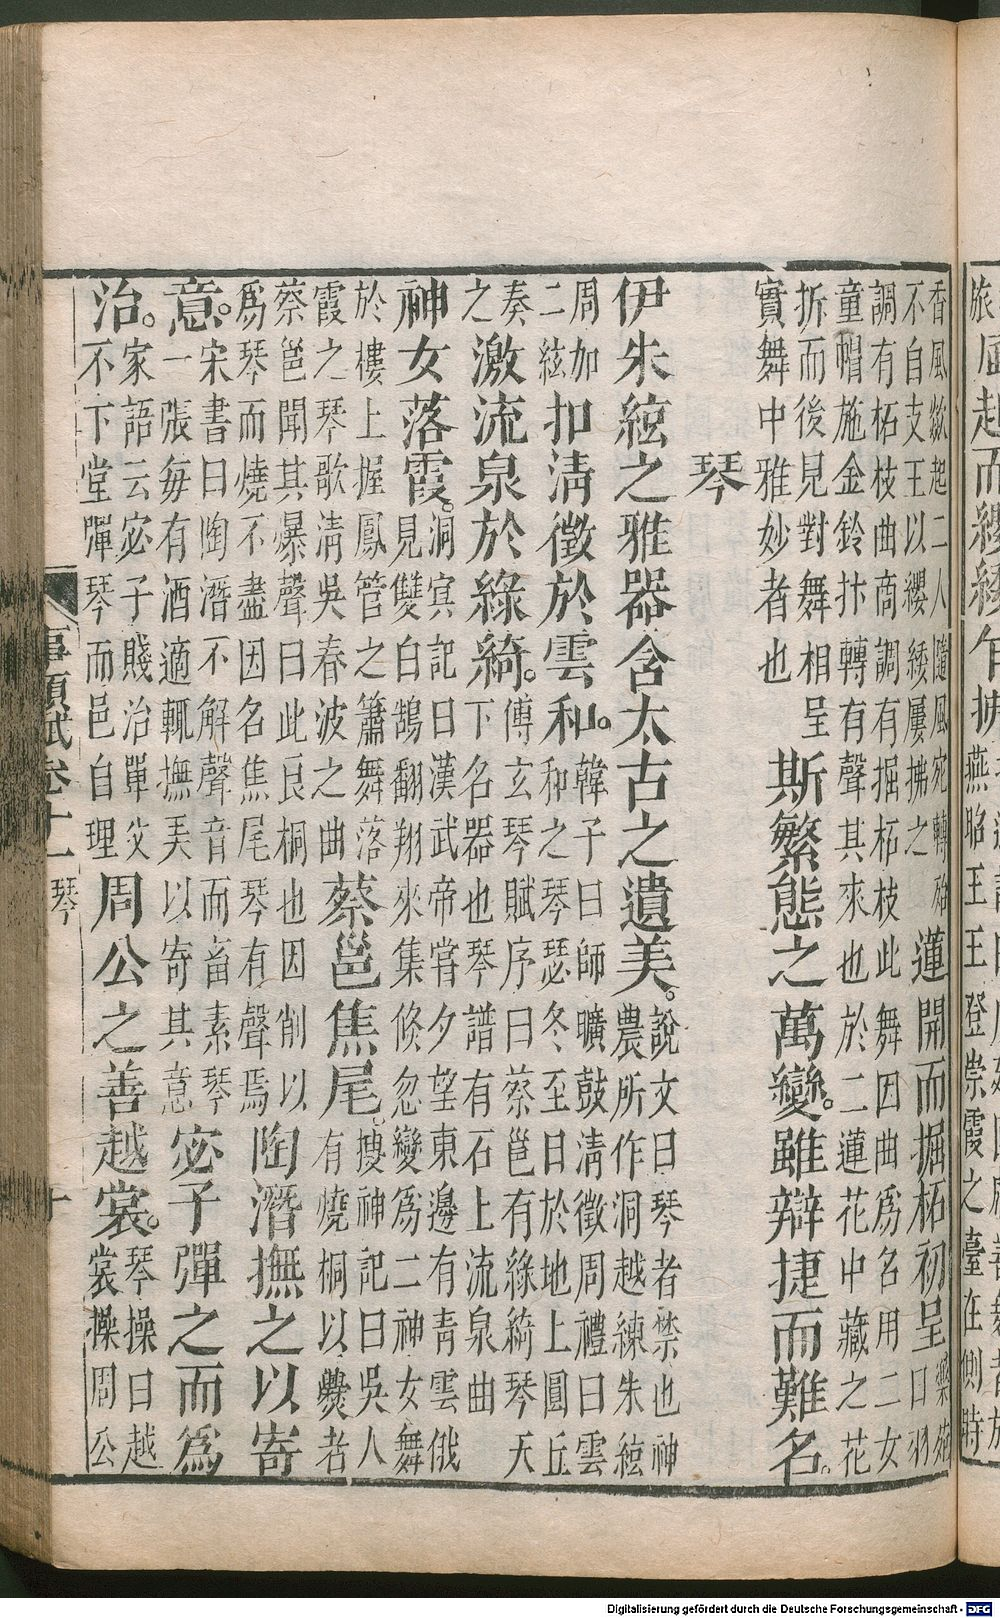 香風歘起二人隨風宛轉殆
不自支王以纓綬屢拂之
蓮開而掘柘初呈
樂苑
曰羽
調有柘枝曲商調有掘柘枝此舞因曲爲名用二女
童帽施金鈴抃轉有聲其來也於二蓮花中藏之花
拆而後見對舞相呈
實舞中雅妙者也
斯繁態之萬變。雖辯捷而難名。
琴
伊朱絃之雅器含太古之遺美。
說文曰琴者禁也神
農所作洞越練朱絃
周加
二絃
扣清徵於雲和。
韓子曰師曠鼓清徵周禮曰雲
和之琴瑟冬至日於地上圓丘
奏
之
激流泉於綠綺。
傅玄琴賦序曰蔡邕有綠綺琴天
下名器也琴譜有石上流泉曲
神女落霞。
洞冥記曰漢武帝嘗夕望東邊有青雲俄
見雙白鵠翻翔來集倏忽變爲二神女舞
於樓上握鳳管之簫舞落
霞之琴歌清吳春波之曲
蔡邕焦尾。
搜神記曰吳人
有燒桐以爨者
蔡邕聞其爆聲曰此良桐也因削以
爲琴而燒不盡因名焦尾琴有聲焉
陶潛撫之以寄
意。
宋書曰陶潛不解聲音而畜素琴
一張每有酒適輒撫弄以寄其意
宓子彈之而爲
治。
家語云宓子賤治單父
不下堂彈琴而邑自理
周公之善越裳。
琴操曰越
裳操周公
事類賦卷十一 琴 十
燕昭王王登崇霞之臺在側時